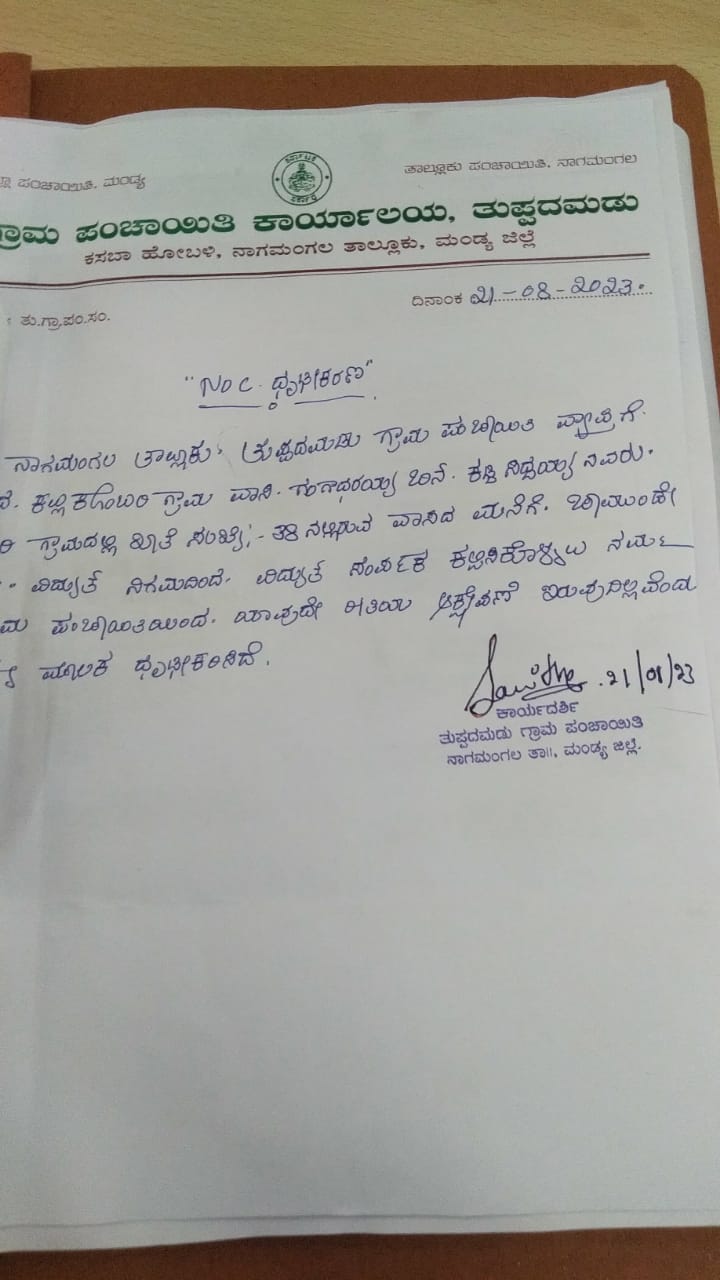 ಲ್ಲಾ ಪಂಚಾಯಿತಿ, ಮಂಡ್ಯ
ತಾಲ್ಲೂಕು ಪಂಚಾಯಿತಿ, ನಾಗಮಂಗಲ
ಗ್ರಾಮ ಪಂಚಾಯಿತಿ ಕಾರ್ಯಾಲಯ, ತುಪ್ಪದಮಡು
ಕಸಬಾ ಹೋಬಳಿ, ನಾಗಮಂಗಲ ತಾಲ್ಲೂಕು, ಮಂಡ್ಯ ಜಿಲ್ಲೆ
: ತು.ಗ್ರಾ.ಪಂ.ಸಂ.
ದಿನಾಂಕ 21-08-2023.
"NOC. ಧೃಢೀಕರಣ"
ನಾಗಮಂಗಲ ತಾಲ್ಲೂಕು, ತುಪ್ಪದಮಡು ಗ್ರಾಮ ಪಂಚಾಯಿತಿ ವ್ಯಾಪ್ತಿಗೆ
ಗ್ರಾಮ ವಾಸಿ. ಗಂಗಾಧರಯ್ಯ ಬಿನ್. ಸಿದ್ದಯ್ಯ ನವರು.
ಗ್ರಾಮದಲ್ಲಿ ಖಾತೆ ಸಂಖ್ಯೆ:- ವಾಸದ ಮನೆಗೆ. ಚಾಮುಂಡೇ
ವಿದ್ಯುತ್ ನಿಗಮದಿಂದ. ವಿದ್ಯುತ್ ಸಂಪರ್ಕ ಕಲ್ಪಿಸಿಕೊಳ್ಳಲು ನಮ್ಮ
ಮ ಪಂಚಾಯಿತಿಯಿಂದ. ಯಾವುದೇ ರೀತಿಯ ಆಕ್ಷೇಪಣೆ ಇರುವುದಿಲ್ಲವೆಂದು
ಮೂಲಕ ಧೃಢೀಕರಿಸಿದೆ.
21/08/23
ಕಾರ್ಯದರ್ಶಿ
ತುಪ್ಪದಮಡು ಗ್ರಾಮ ಪಂಚಾಯಿತಿ
ನಾಗಮಂಗಲ ತಾ॥, ಮಂಡ್ಯ ಜಿಲ್ಲೆ.